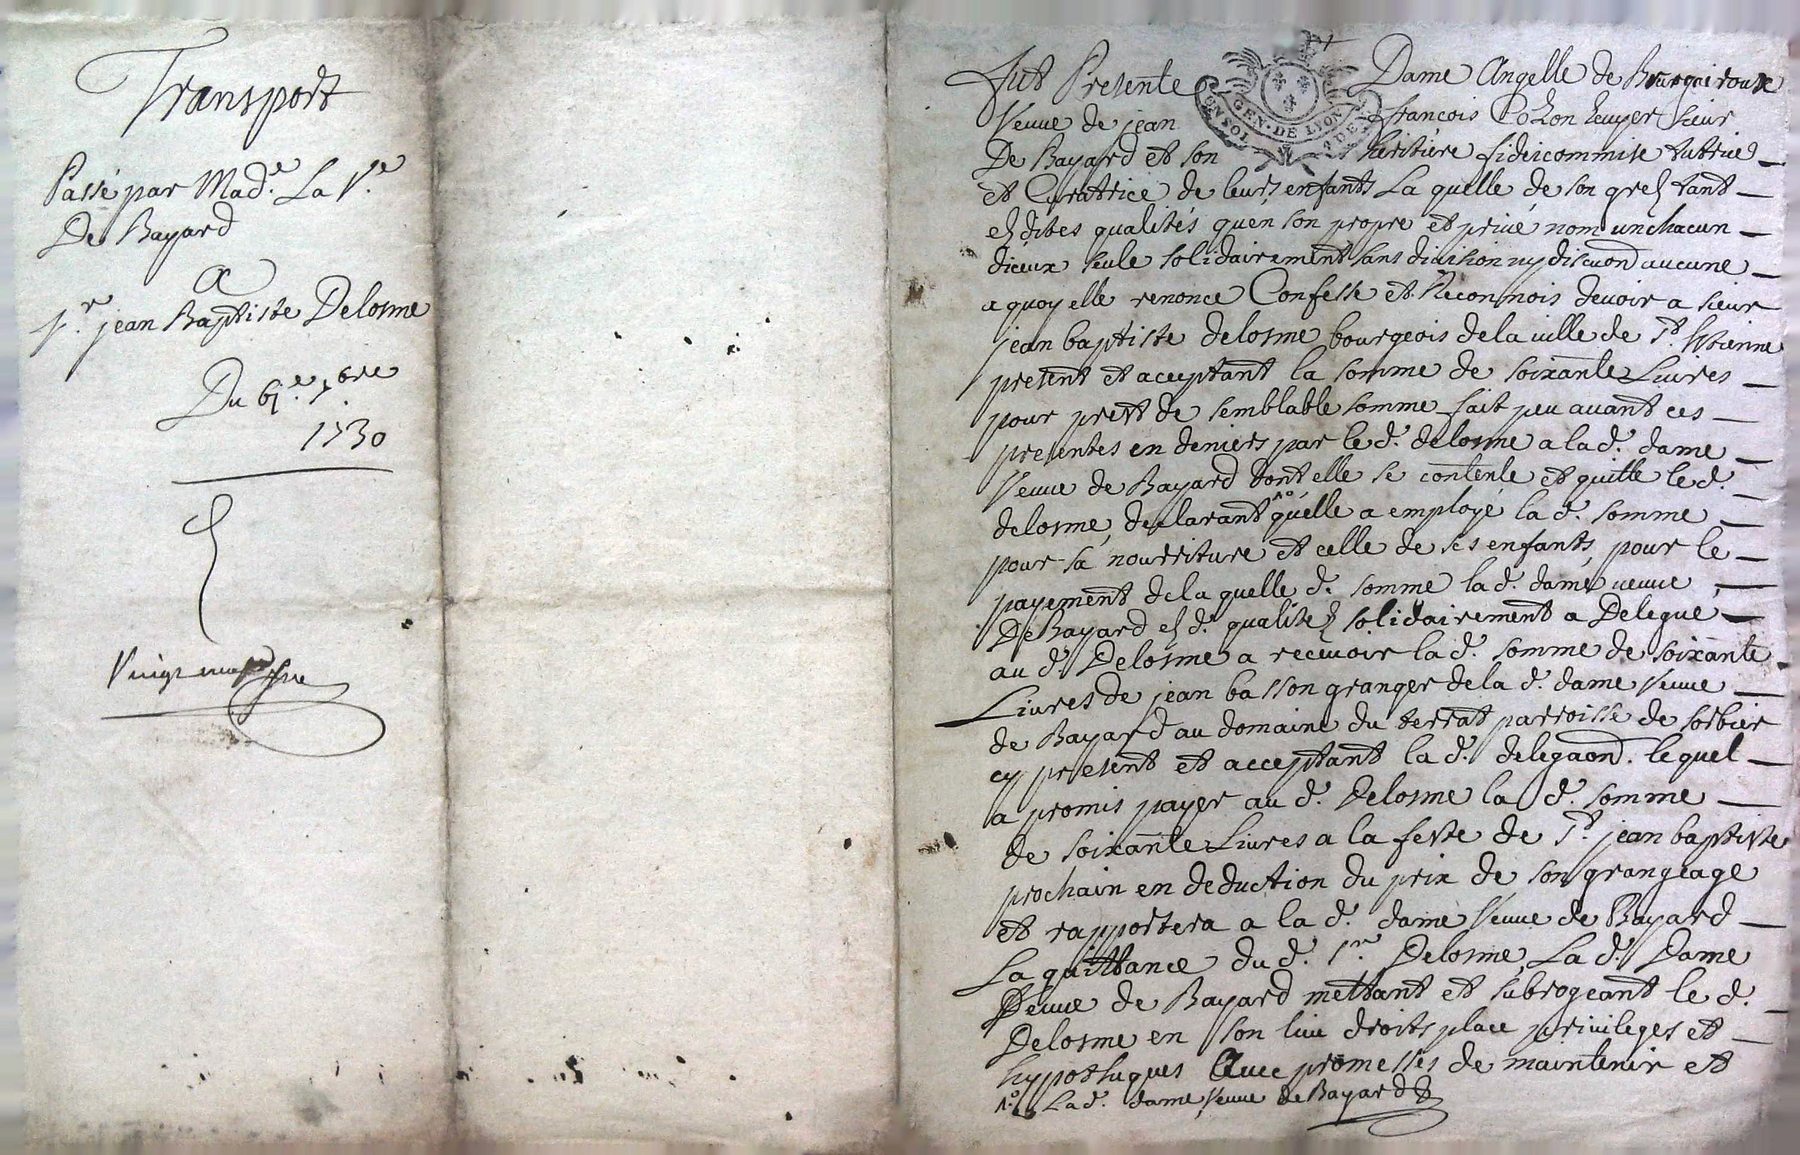 Transport
Passé par Mad.e La V.e
De Bayard
A
S.r jean Baptiste Delosme
Du 6.e 7bre
1730
Fut Presente Dame Angelle de
GEN. DE LYON
Veuve de jean françois Cohon Ecuyer Sieur
De Bayard et son heritiere fideicommise tutrice
et Curatrice de leurs enfants La quelle de son gré tant
esdites qualités quen son propre et privé nom un chacun
diceux seule solidairement sans division ny discuon aucune
a quoy elle renonce Confesse et Reconnois devoir a sieur
jean baptiste delosme bourgeois de la ville de St. Estienne
present et aceptant la somme de soixante Livres
pour prest de semblable somme fait peu avant ces
presentes en deniers par le d. delosme a la d. dame
Veuve de Bayard dont elle se contente et quitte le d.
delosme, declarant 1.o quelle a employé la d. somme
pour sa nourriture et celle de ses enfants, pour le
payement dela quelle d. somme la d. dame veuve
De Bayard es d. qualités solidairement a Delegue
au d. Delosme a recevoir la d. somme de soixante
Livres de jean basson granger de la d. dame Veuve
de Bayard au domaine du terrat parroisse de sorbier
cy present et acceptant la d. delegaon. lequel
a promis payer au d. Delosme la d. somme
de soixante Livres a la feste de St. jean baptiste
prochain en deduction du prix de son grangeage
et rapportera a la d. dame Veuve de Bayard
La quittance du d. Sr. Delosme, La d. Dame
Veuve de Bayard mettant et subrogeant le d.
Delosme en son lieu droits place privileges et
hypotheques Avec promesses de maintenir et
1.o La d. dame Veuve de Bayard